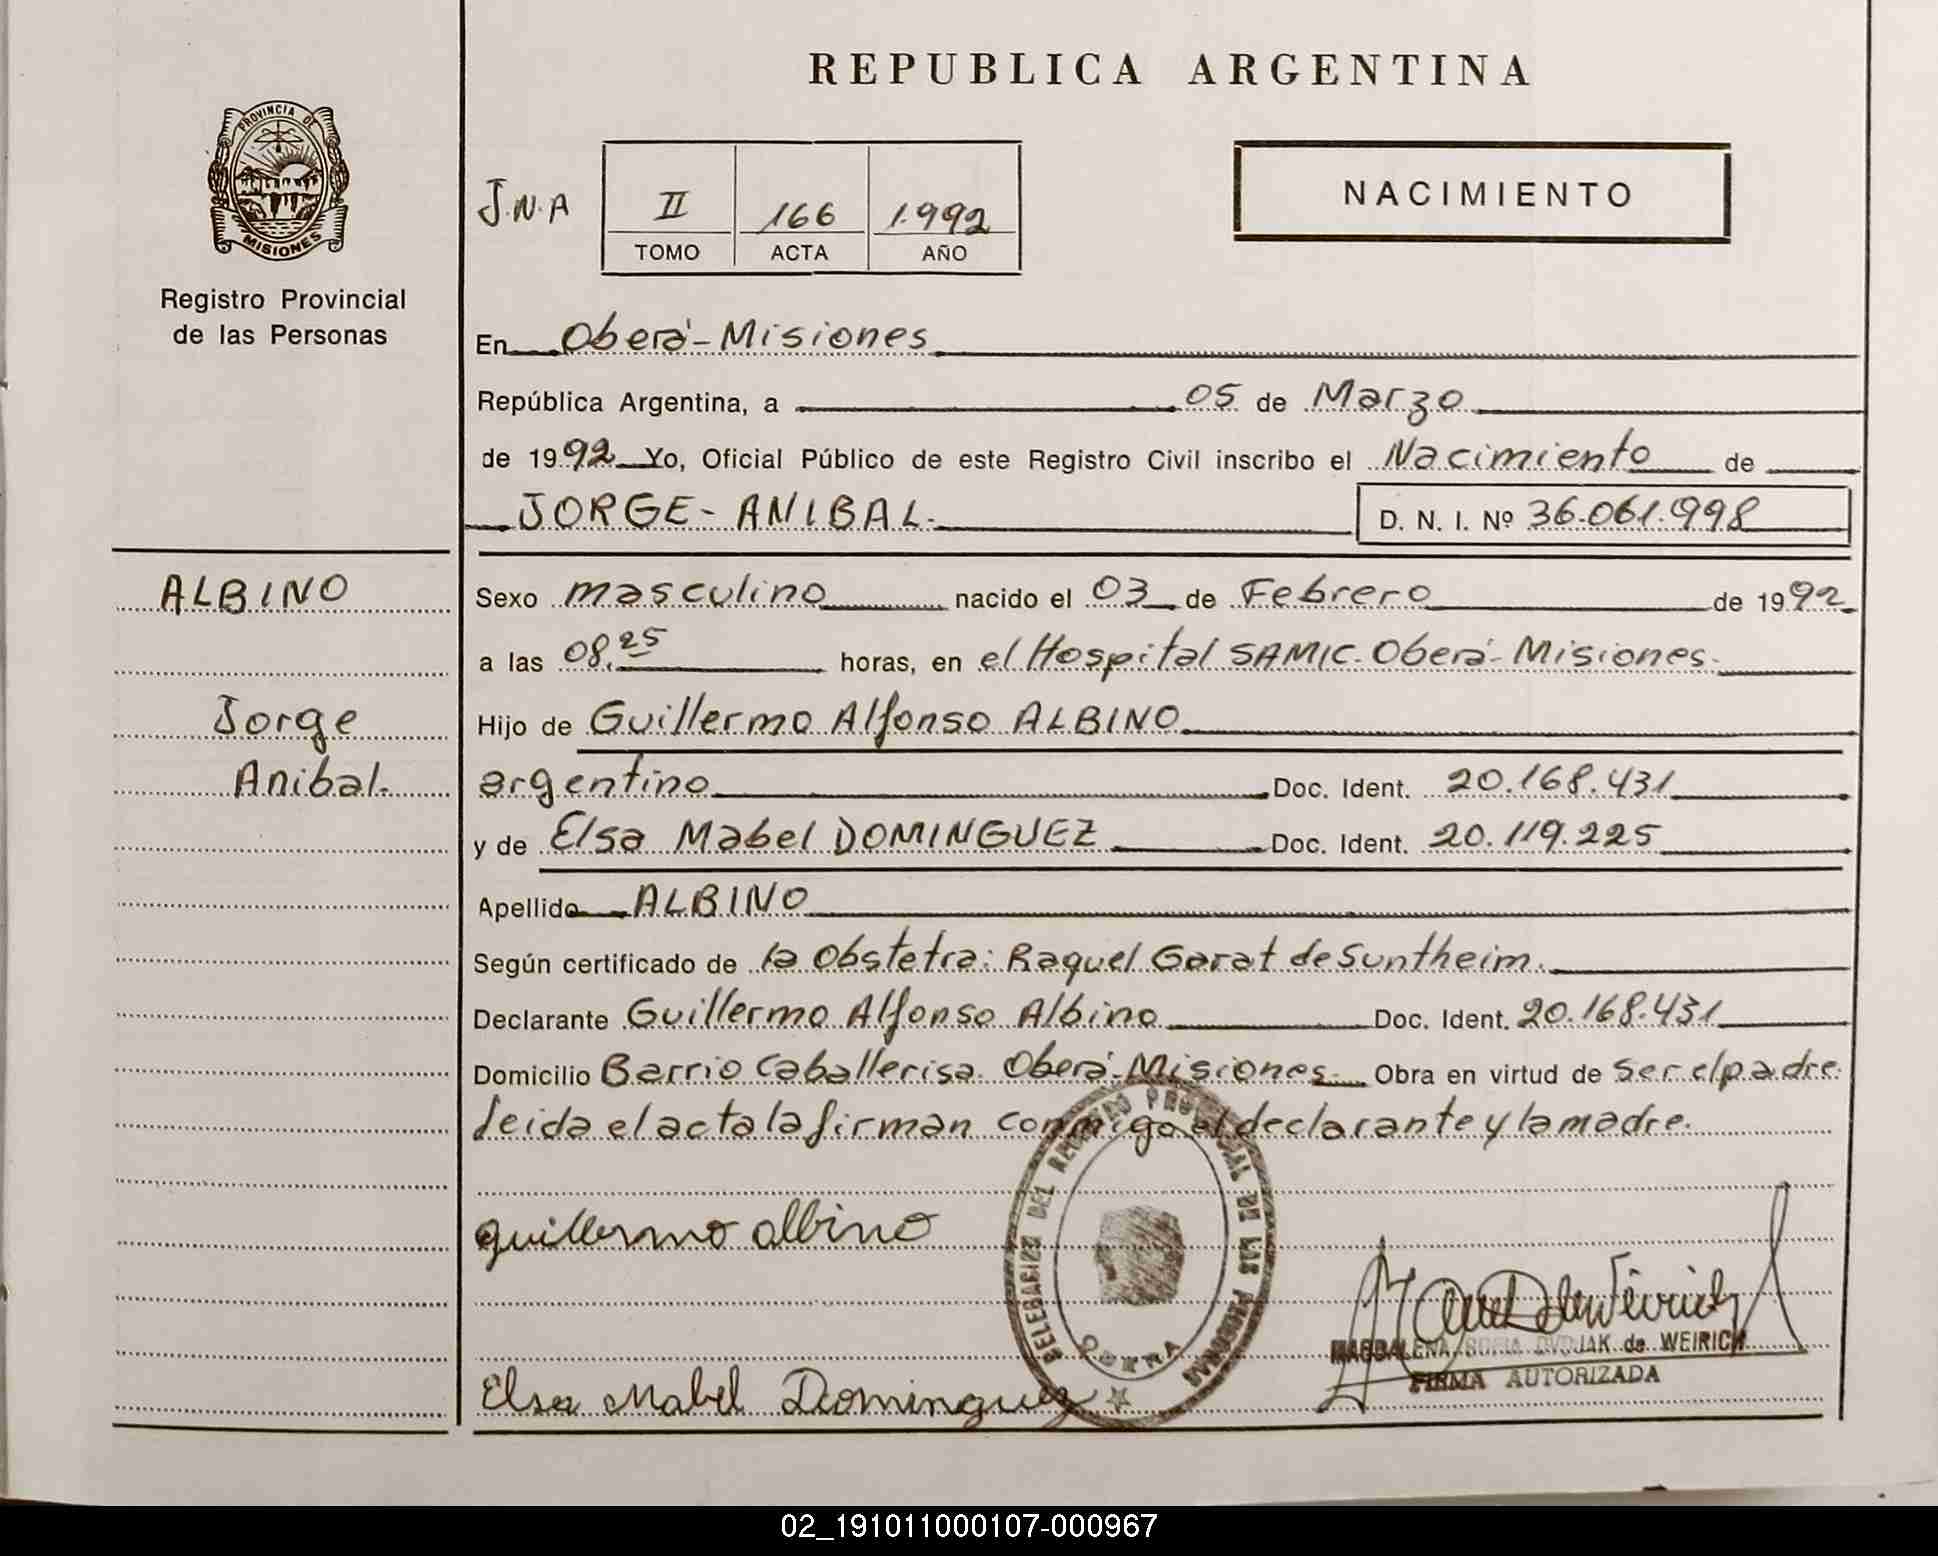 REPUBLICA ARGENTINA
PROVINCIA DE
MISIONES
Registro Provincial
de las Personas
J.N.A
II 166 1.992
TOMO ACTA AÑO
NACIMIENTO
En Oberá-Misiones
República Argentina, a 05 de Marzo
de 1992 Yo, Oficial Público de este Registro Civil inscribo el Nacimiento de
JORGE-ANIBAL. D. N. I. Nº 36.061.998
ALBINO
Jorge
Anibal.
Sexo masculino nacido el 03 de Febrero de 1992
a las 08,25 horas, en el Hospital SAMIC. Oberá-Misiones.
Hijo de Guillermo Alfonso ALBINO
argentino Doc. Ident. 20.168.431
y de Elsa Mabel DOMINGUEZ Doc. Ident. 20.119.225
Apellido ALBINO
Según certificado de la Obstetra: Raquel Garat de Suntheim.
Declarante Guillermo Alfonso Albino Doc. Ident. 20.168.431
Domicilio Barrio Caballerisa. Oberá-Misiones. Obra en virtud de ser el padre.
leida el acta la firman conmigo el declarante y la madre.
guillermo albino
Elsa Mabel Dominguez
DELEGACION DEL REGISTRO PROVINCIAL DE LAS PERSONAS
OBERA
MAGDALENA SOFIA DVOJAK de WEIRICH
FIRMA AUTORIZADA
02_191011000107-000967